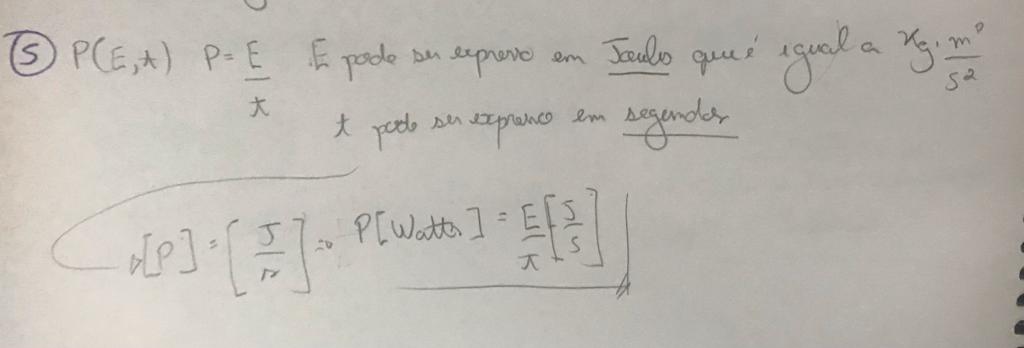 5 P(E,t) P = E/t . E pode ser expresso em Joules que é igual a Kg . m²/s²
t pode ser expresso em segundos
[P] = [J/s] => P[Watts] = E/t [J/s]